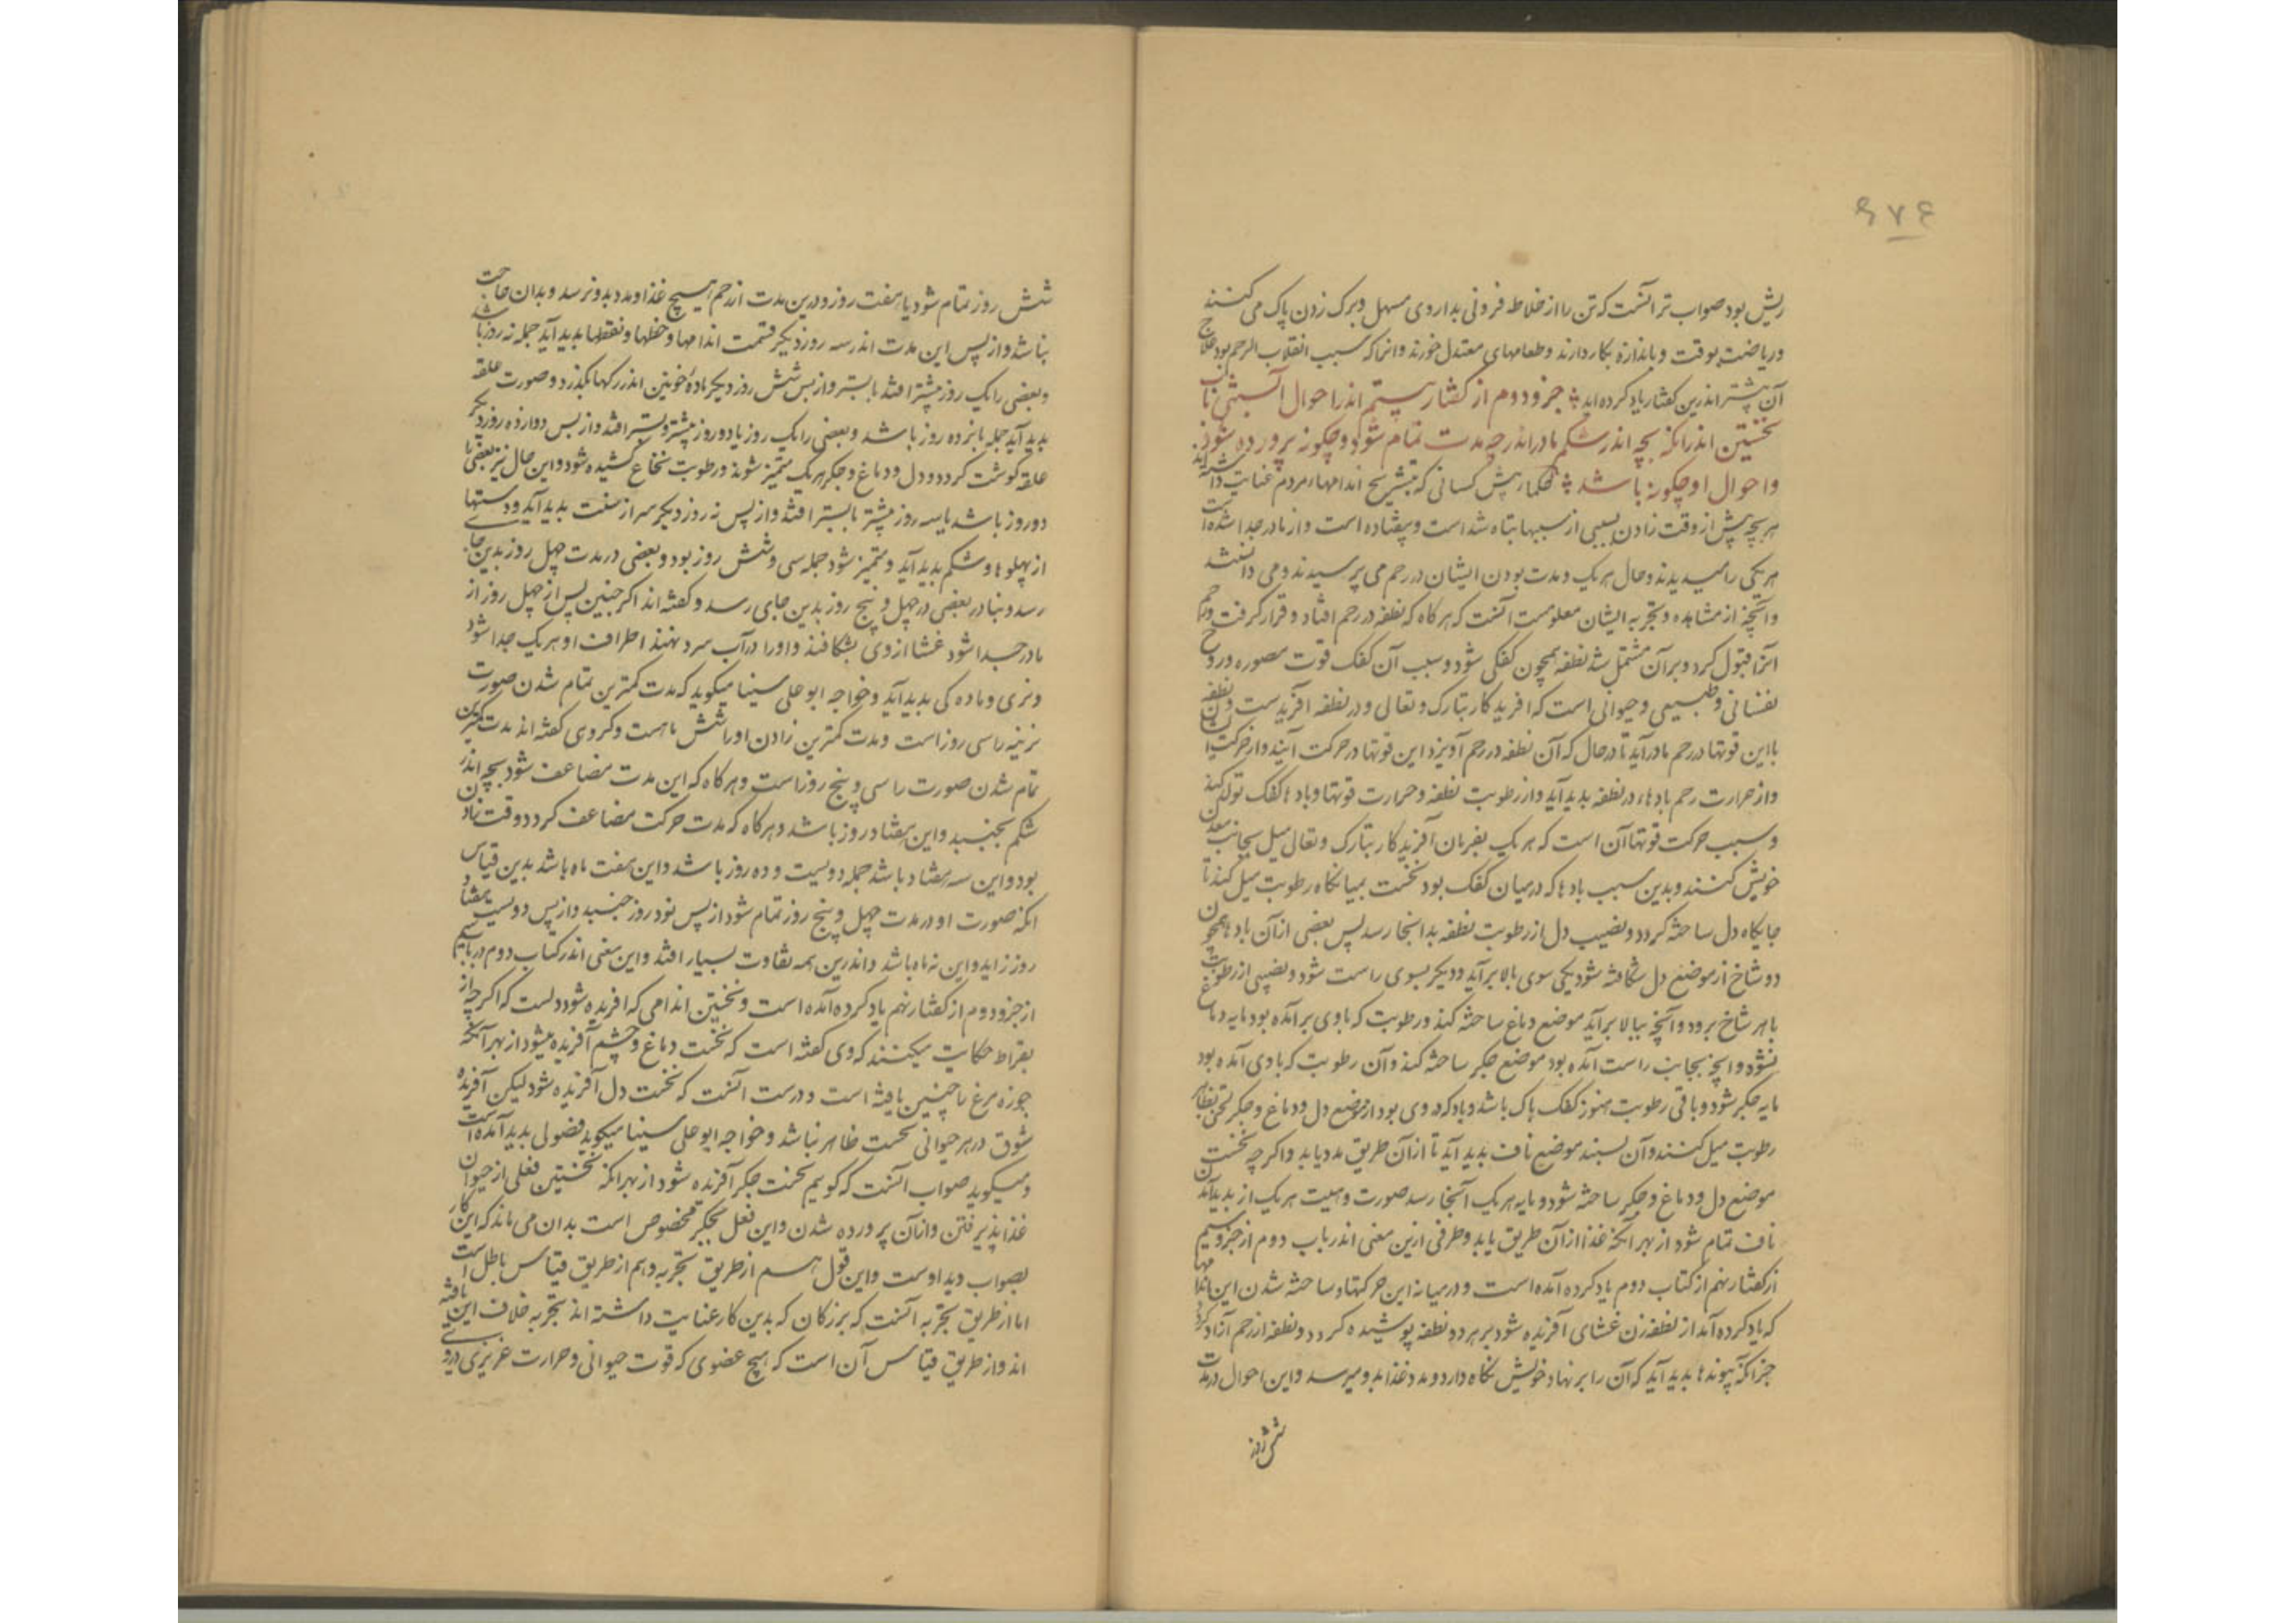 ۶۷۴
ریش بود صواب تر آنست که تن را از خلاطه فزونی بداروی مسهل و برک زدن پاک می کنند
و ریاضت بوقت و باندازه بکار دارند و طعامهای معتدل خورند و انرا که سبب انقلاب الرحم بود علاج
آن پیشتر اندرین کفتار یاد کرده اید جزو دوم از کفتار بیستم اندر احوال آبستنی باب
نخستین اندر انکه بچه اندر شکم مادر اندر چه مدت تمام شود و چکونه پرورده شود
و احوال او چکونه باشد حکما پیش کسانی که بتشریح اندامهاء مردم عنایت داشته اند
هر بچه پیش از وقت زادن بسببی از سببها تباه شد است و بیفتاده است و از مادر جدا شده است
هر یکی را میدیدند و حال هر یک و مدت بودن ایشان در رحم می پرسیدند و می دانستند
و آنچه از مشاهده و تجربه ایشان معلومست آنست که هر کاه که نطفه در رحم افتاد و قرار کرفت و رحم
انرا قبول کرد و بر آن مشتمل شد نطفه همچون کفکی شود و سبب آن کفک قوت مصوره و روح
نفسانی و طبیعی و حیوانی است که افریدکار تبارک و تعالی و در نطفه آفریدست و نطفه
با این قوتها در رحم مادر آید تا در حال که آن نطفه در رحم آویزد این قوتها در حرکت آیند و از حرکت
و از حرارت رحم بادها در نطفه پدید آید و از رطوبت نطفه و حرارت قوتها و بادها کفک تولد کند
و سبب حرکت قوتها آن است که هر یک بفرمان آفریدکار تبارک و تعالی میل بجانب معدن
خویش کنند و بدین سبب بادها که در میان کفک بود نخست بمیانکاه رطوبت میل کند تا
جایکاه دل ساخته کردد و نصیب دل از رطوبت نطفه بدانجا رسد پس بعضی از آن بادها همچون
دو شاخ از موضع دل شکافته شود یکی سوی بالا برآید و دیکر بسوی راست شود و نصیبی از رطوبت
با هر شاخ برود و آنچه ببالا برآید موضع دماغ ساخته کند و رطوبت که باوی برآمده بود مایه دماغ
شود و انچه بجانب راست آمده بود موضع جکر ساخته کند و آن رطوبت که باوی آمده بود
مایه جکر شود و باقی رطوبت هنوز کفک پاک باشد و باد که در وی بود از موضع دل و دماغ و جکر
رطوبت میل کنند و آن بسبب موضع ناف پدید آید تا از آن طریق مدد یابد و اکر چه نخست
موضع دل و دماغ و جکر ساخته شود و مایه هر یک آنجا رسد صورت و هیبت هر یک از پدید آمدن
ناف تمام شود از بهر آنکه غذا از آن طریق یابد و طرفی ازین معنی اندر باب دوم از جزو سیم
از کفتار نهم از کتاب دوم یاد کرده آمده است و در میانه این حرکتها و ساخته شدن این اندامها
که یاد کرده آمد از نطفه زن غشای آفریده شود بر هر دو نطفه پوشیده کردد و نطفه از رحم آزاد کردد
جز انکه پیوندها پدید آید که آن را بر نهاد خویش نکاه دارد و مدد غذا بدو میرسد و این احوال در مدت
شش روز
شش روز تمام شود یا هفت روز و درین مدت از رحم هیچ غذا و مدد بدو نرسد و بدان حاجت
نباشد و از پس این مدت اندر سه روز دیکر قسمت اندامها و خطها و نقطها پدید آید جمله نه روز باشد
و بعضی را یک روز پیشتر افتد یا بستر و از پس شش روز دیکر مادهٔ خونین اندر رکها بکذرد و صورت علقه
پدید آید جمله پانزده روز باشد و بعضی را یک روز یا دو روز پیشتر و بستر افتد و از پس دوازده روز دیکر
علقه کوشت کردد و دل و دماغ و جکر هر یک متمیز شوند و رطوبت نخاع کشیده شود و این حال نیز بعضی را
دو روز باشد یا سه روز پیشتر یا بستر افتد و از پس نه روز دیکر سر از منکب پدید آید و دستها
از پهلوها و شکم پدید آید و متمیز شود جمله سی و شش روز بود و بعضی در مدت چهل روز بدین جای
رسد و بنادر بعضی در چهل و پنج روز بدین جای رسد و کفته اند اکر جنین پس از چهل روز از
مادر جدا شود غشا از وی بشکافند و او را در آب سرد نهند اطراف او هر یک جدا شود
و نری و ماده کی پدید آید و خواجه ابو علی سینا میکوید که مدت کمترین تمام شدن صورت
نرینه را سی روز است و مدت کمترین زادن او را شش ماهست و کروی کفته اند مدت کمترین
تمام شدن صورت را سی و پنج روز است و هر کاه که این مدت مضاعف شود بچه اندر
شکم بجنبید و این هفتاد روز باشد و هر کاه که مدت حرکت مضاعف کردد وقت زادن
بود و این سه هفتاد باشد جمله دویست و ده روز باشد و این هفت ماه باشد بدین قیاس
انکه صورت او در مدت چهل و پنج روز تمام شود از پس نود روز جنبید و از پس دویست هفتاد
روز زاید و این نه ماه باشد و اندرین همه تفاوت بسیار افتد و این معنی اندر کتاب دوم در باب سیم
از جزو دوم از کفتار نهم یاد کرده آمده است و نخستین اندامی که افریده شود دلست که اکر چه از
بقراط حکایت میکنند که وی کفته است که نخست دماغ و چشم آفریده میشود از بهر آنکه
جوزه مرغ را چنین یافته است و درست آنست که نخست دل آفریده شود لیکن آفریده
شوق در هر حیوانی نخست ظاهر نباشد و خواجه ابو علی سینا میکوید فضولی پدید آمده است
و میکوید صواب آنست که کویم نخست جکر آفریده شود از بهر انکه نخستین فعلی از حیوان
غذا پذیرفتن و از آن پرورده شدن و این فعل بجکر مخصوص است بدان می ماند که این کار
بصواب دیداوست و این قول هم از طریق تجربه و هم از طریق قیاس باطل است
اما از طریق تجربه آنست که بزرکان که بدین کار عنایت داشته اند تجربه خلاف این یافته
اند و از طریق قیاس آن است که هیچ عضوی که قوت حیوانی و حرارت غریزی در وی